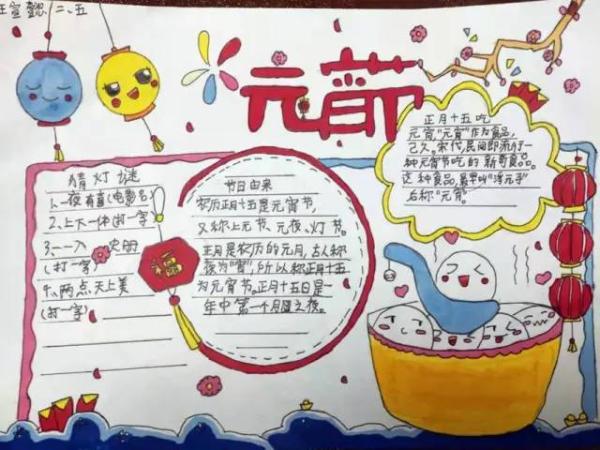 宣懿 二、五
元宵节
猜灯谜
1、一夜有(电影名)
2、上下一体(打一字)
3、一入 史册
(打一字)
4、两点天上美
(打一字)
福
节日由来
农历正月十五是元宵节,
又称上元节、元夜、灯节。
正月是农历的元月,古人称
夜为“宵”,所以称正月十五
为元宵节。正月十五日是一
年中第一个月圆之夜。
正月十五吃
元宵,“元宵”作为食品,
己久。宋代,民间即流行一
种元宵节吃的新奇食品。
这种食品,最早叫“浮元子”
后称“元宵”。